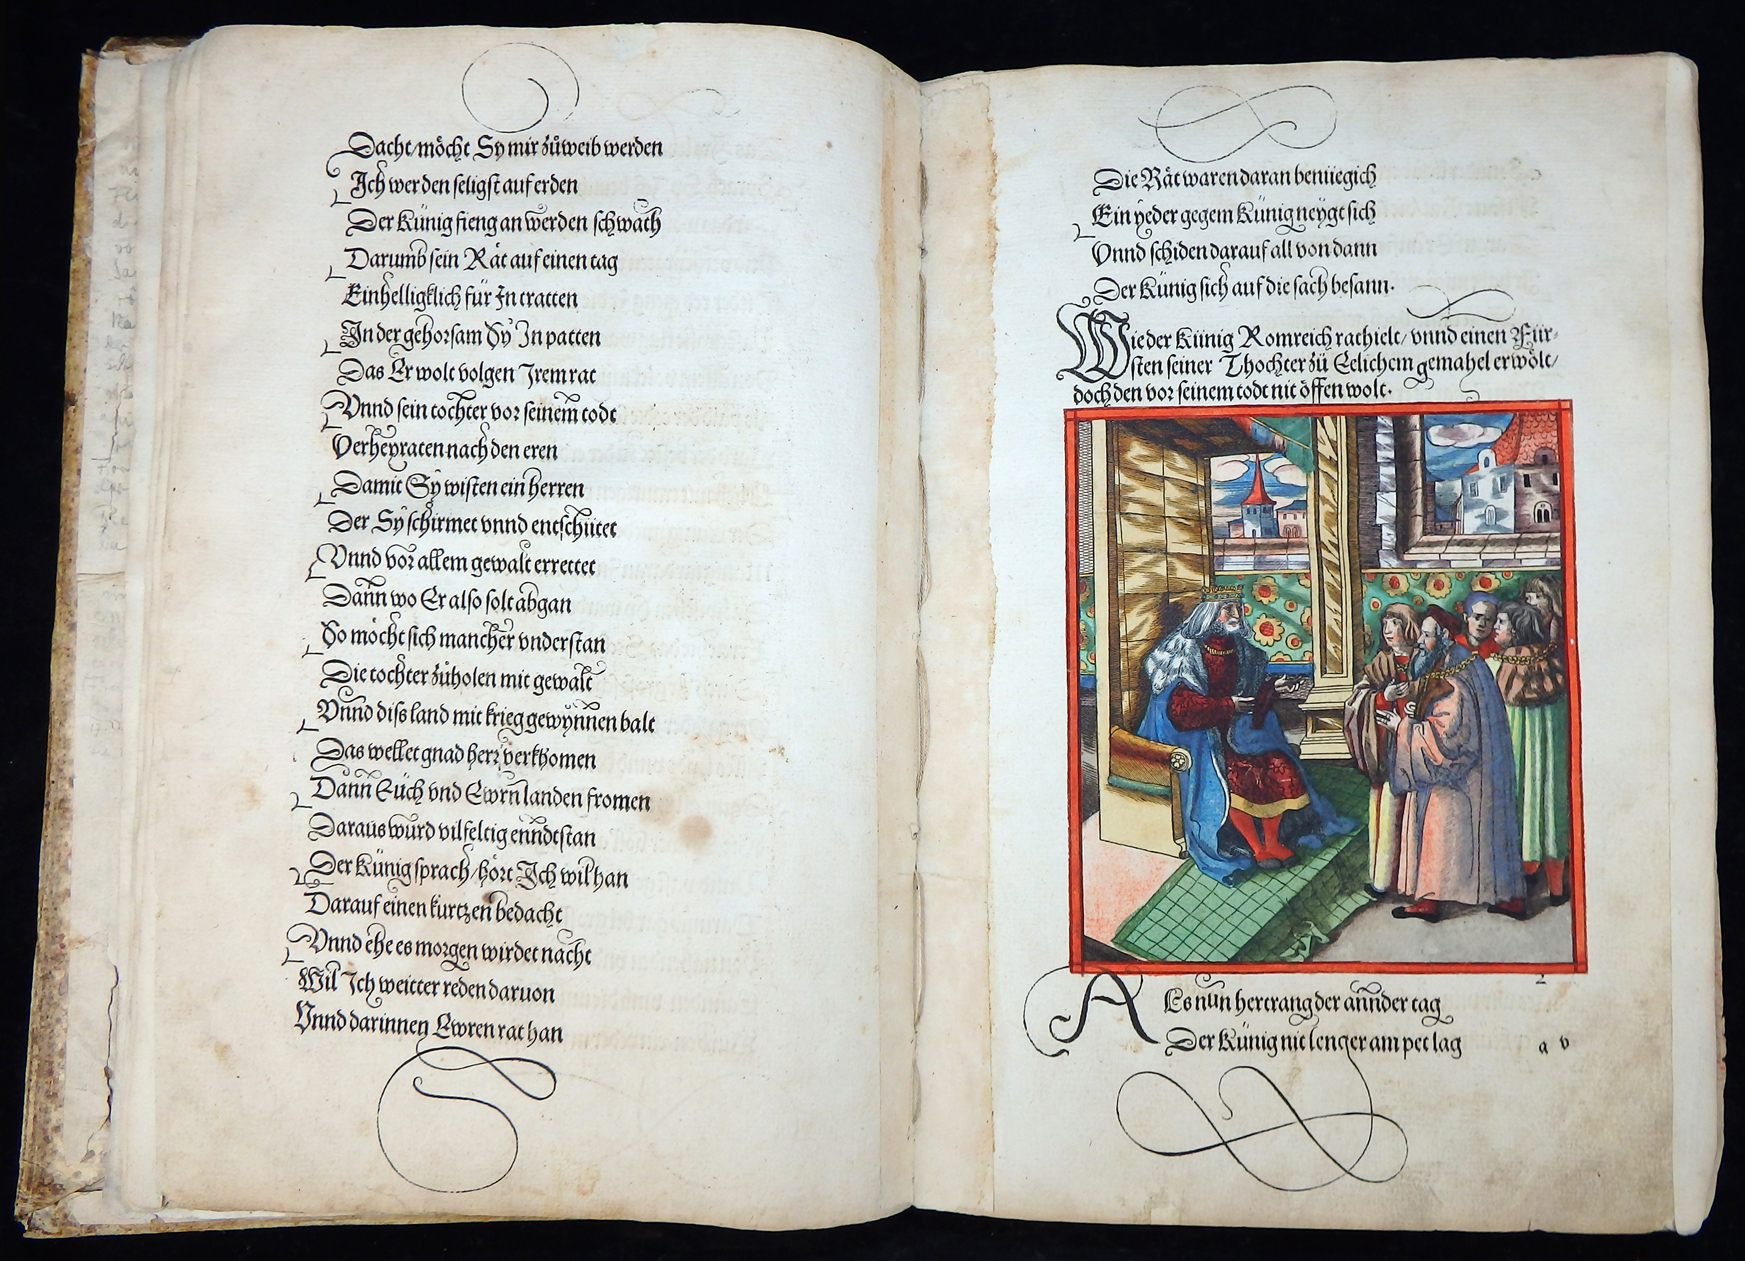 Dacht/möcht Sy mir zůweib werden
Ich werden seligst auf erden
Der Künig fieng an werden schwach
Darumb sein Rät auf einen tag
Einhelligklich für In tratten
In der gehorsam Sy In patten
Das Er wolt volgen Irem rat
Vnnd sein tochter vor seinem todt
Verheyraten nach den eren
Damit Sy wisten ein herren
Der Sy schirmet vnnd entschütet
Vnnd vor allem gewalt errettet
Dann wo Er also solt abgan
So möcht sich mancher vnderstan
Die tochter zůholen mit gewalt
Vnnd diss land mit krieg gewynnen balt
Das wellet gnad herr verkhomen
Dann Euch vnd Ewrn landen fromen
Daraus wurd vilfeltig enndtstan
Der Künig sprach/hört Ich wil han
Darauf einen kurtzen bedacht
Vnnd ehe es morgen wirdet nacht
Wil Ich weitter reden daruon
Vnnd darinnen Ewren rat han
Die Rät waren daran benüegich
Ein yeder gegem Künig neygt sich
Vnnd schiden darauf all von dann
Der Künig sich auf die sach besann.
Wie der Künig Romreich rat hielt/ vnnd einen Für-
sten seiner Thochter zů Eelichem gemahel erwölt/
doch den vor seinem todt nit öffen wolt.
2
Als nun hertrang der annder tag
Der Künig nit lenger am pet lag
a v